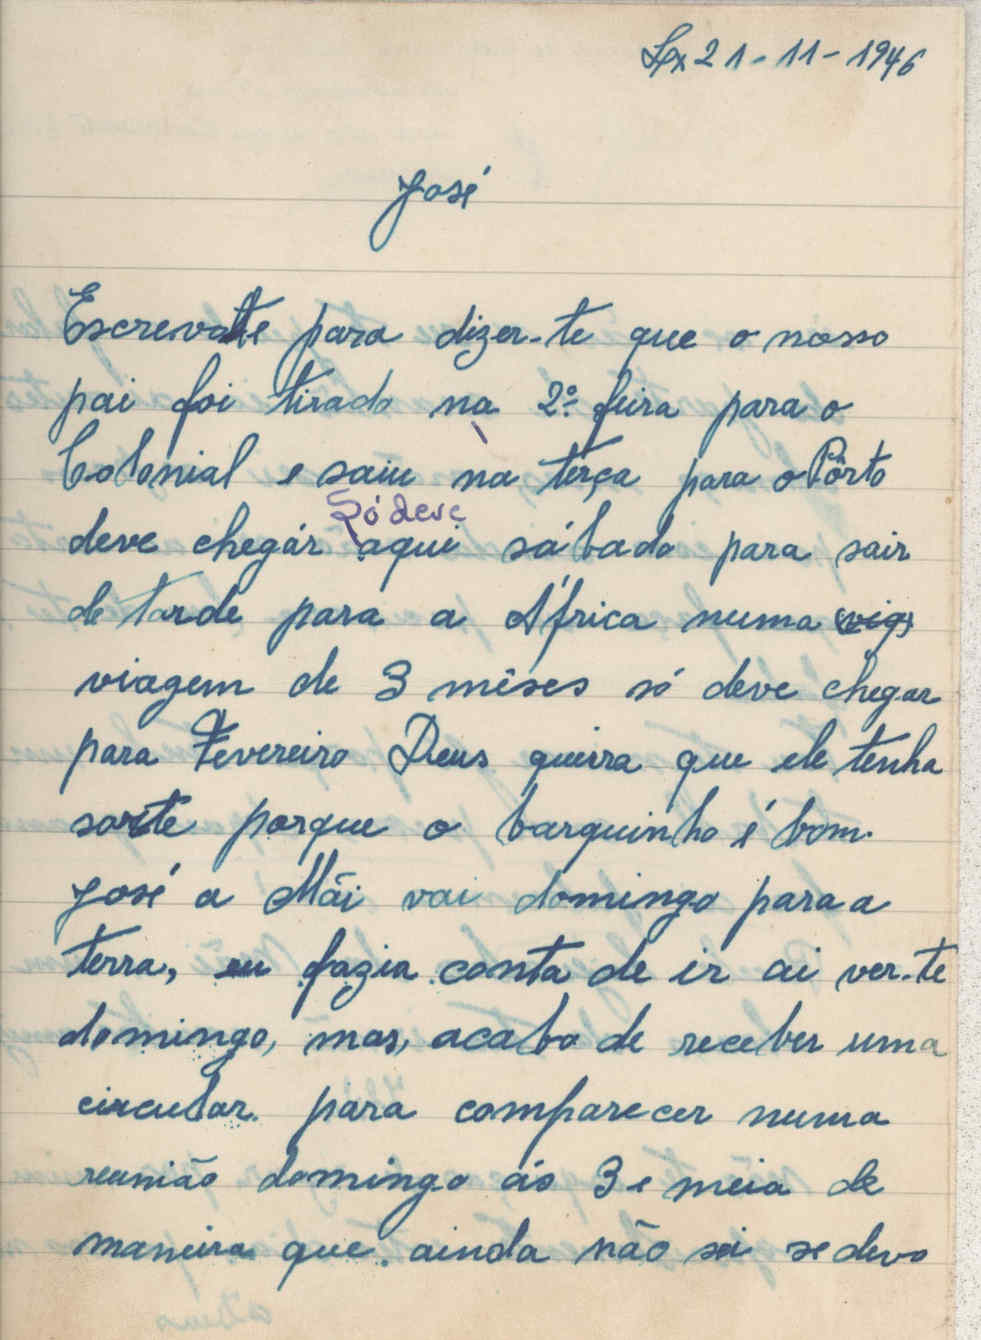 Lx 21-11-1946
José
Escrevo-te para dizer-te que o nosso
pai foi tirado na 2ª feira para o
Colonial e saiu na terça para o Pôrto
Só deve
deve chegár aqui sábado para sair
de tarde para a África numa (vig)
viagem de 3 mêses só deve chegar
para Fevereiro Deus queira que ele tenha
sorte porque o barquinho é bom.
José a Mãi vai domingo para a
terra, eu fazia conta de ir ai ver-te
domingo, mas, acabo de receber uma
circular para comparecer numa
reunião domingo ás 3 e meia de
maneira que ainda não sei se devo